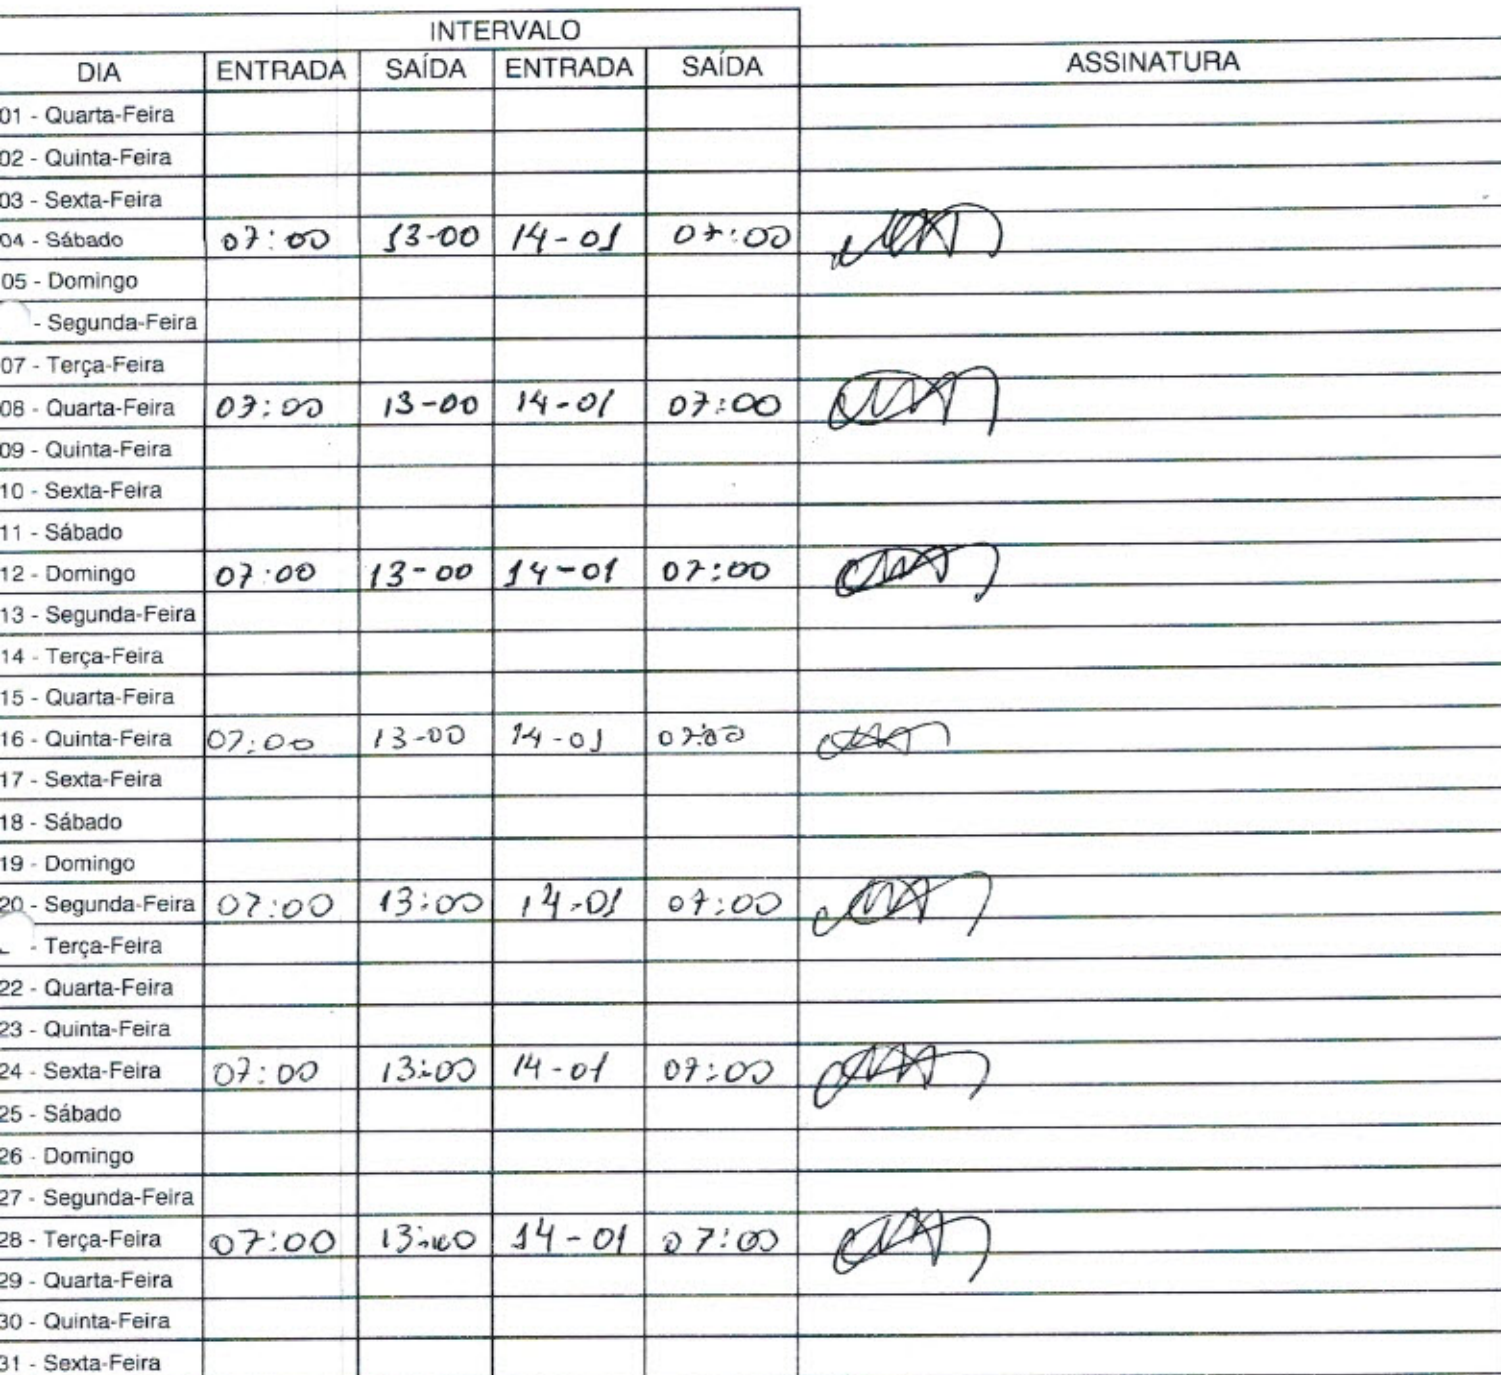 INTERVALO
DIA ENTRADA SAÍDA ENTRADA SAÍDA ASSINATURA
01 - Quarta-Feira
02 - Quinta-Feira
03 - Sexta-Feira
04 - Sábado 07:00 13-00 14-01 07:00
05 - Domingo
- Segunda-Feira
07 - Terça-Feira
08 - Quarta-Feira 07:00 13-00 14-01 07:00
09 - Quinta-Feira
10 - Sexta-Feira
11 - Sábado
12 - Domingo 07:00 13-00 14-01 07:00
13 - Segunda-Feira
14 - Terça-Feira
15 - Quarta-Feira
16 - Quinta-Feira 07:00 13-00 14-01 07:00
17 - Sexta-Feira
18 - Sábado
19 - Domingo
20 - Segunda-Feira 07:00 13:00 14-01 07:00
- Terça-Feira
22 - Quarta-Feira
23 - Quinta-Feira
24 - Sexta-Feira 07:00 13:00 14-01 07:00
25 - Sábado
26 - Domingo
27 - Segunda-Feira
28 - Terça-Feira 07:00 13:00 14-01 07:00
29 - Quarta-Feira
30 - Quinta-Feira
31 - Sexta-Feira